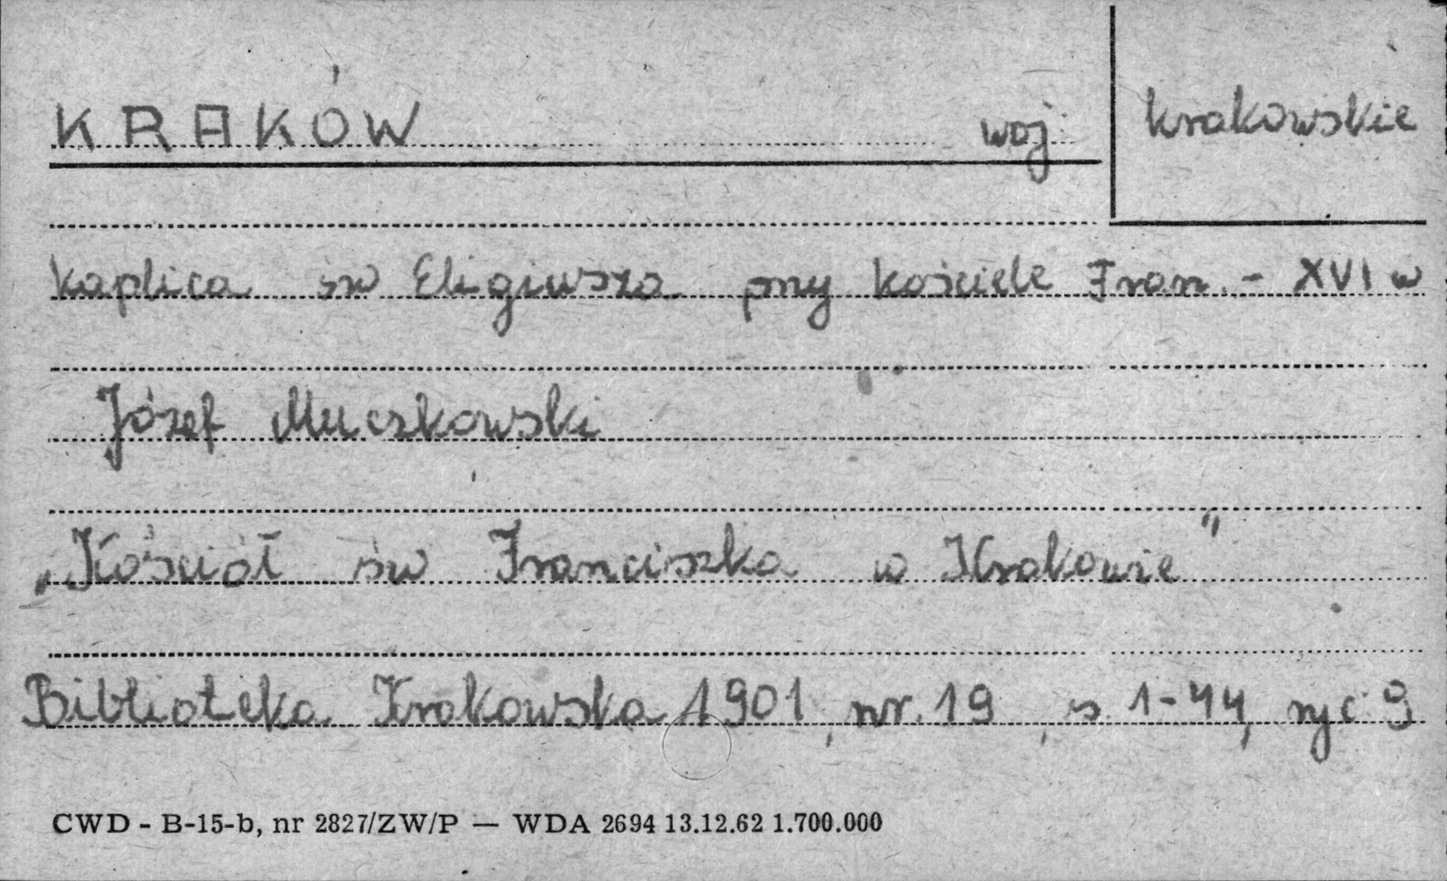 KRAKÓW woj. krakowskie
kaplica św Eligiusza przy kościele Fran. - XVI w
Józef Muczkowski
„Kościół św Franciszka w Krakowie"
Biblioteka Krakowska 1901, nr. 19, s 1-44, ryc 9
CWD - B-15-b, nr 2827/ZW/P — WDA 2694 13.12.62 1.700.000